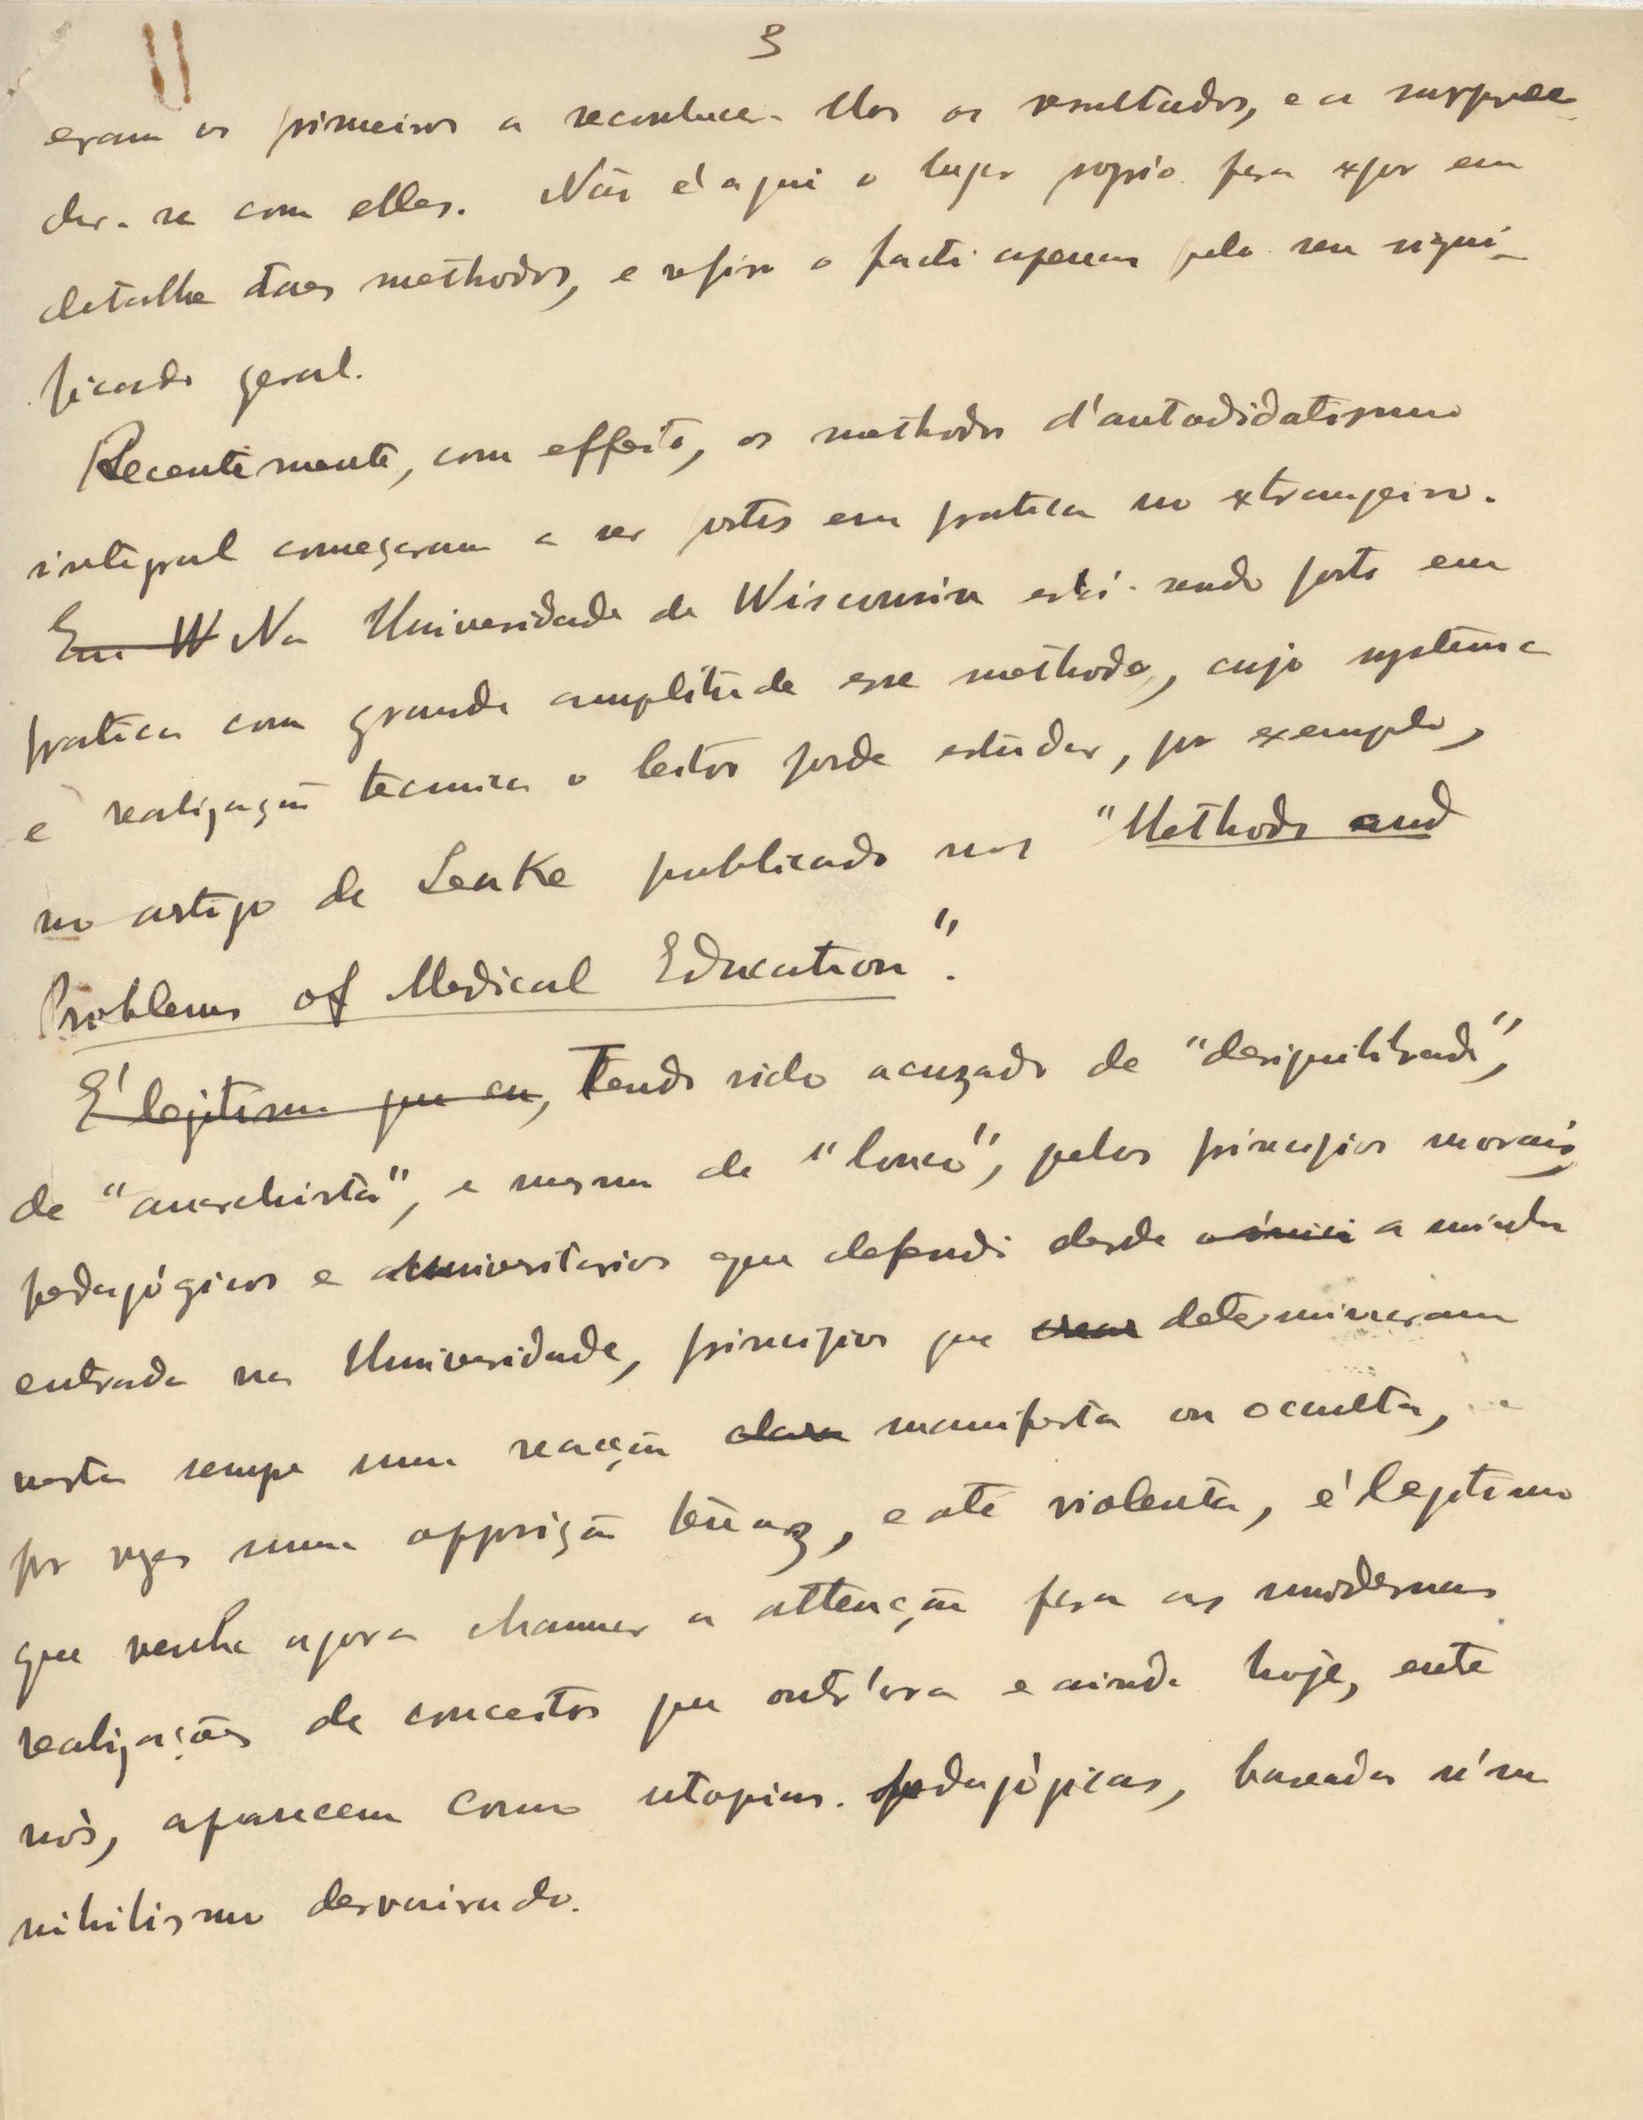 3
eram os primeiros a reconhecer-lhes os resultados, e a surpreen-
der-se com elles. Não é aqui o lugar proprio para expor em
detalhe taes methodos, e refiro o facto apenas pelo seu signi-
ficado geral.
Recentemente, com effeito, os methodos d'autodidatismo
integral começaram a ser postos em pratica no extrangeiro.
Em W Na Universidade de Wisconsin está sendo posto em
pratica com grande amplitude esse methodo, cujo systema
e realização technica o leitor pode estudar, por exemplo,
no artigo de Leake publicado nos "Methods and
Problems of Medical Education".
É legitimo que eu, Tendo sido acuzado de "desiquilibrado",
de "anarchista", e mesmo de "louco", pelos principios moraes,
pedagógicos e universitarios que defendi desde o inicio a minha
entrada na Universidade, principios que determinaram
nesta sempre uma reacção clara manifesta ou occulta, e
por vezes numa opposição tenaz, e até violenta, é legitimo
que venha agora chamar a attenção para as modernas
realizações de conceitos que outr'ora e ainda hoje, entre
nós, aparecem como utopias pedagógicas, baseadas n'um
nihilismo desvairado.